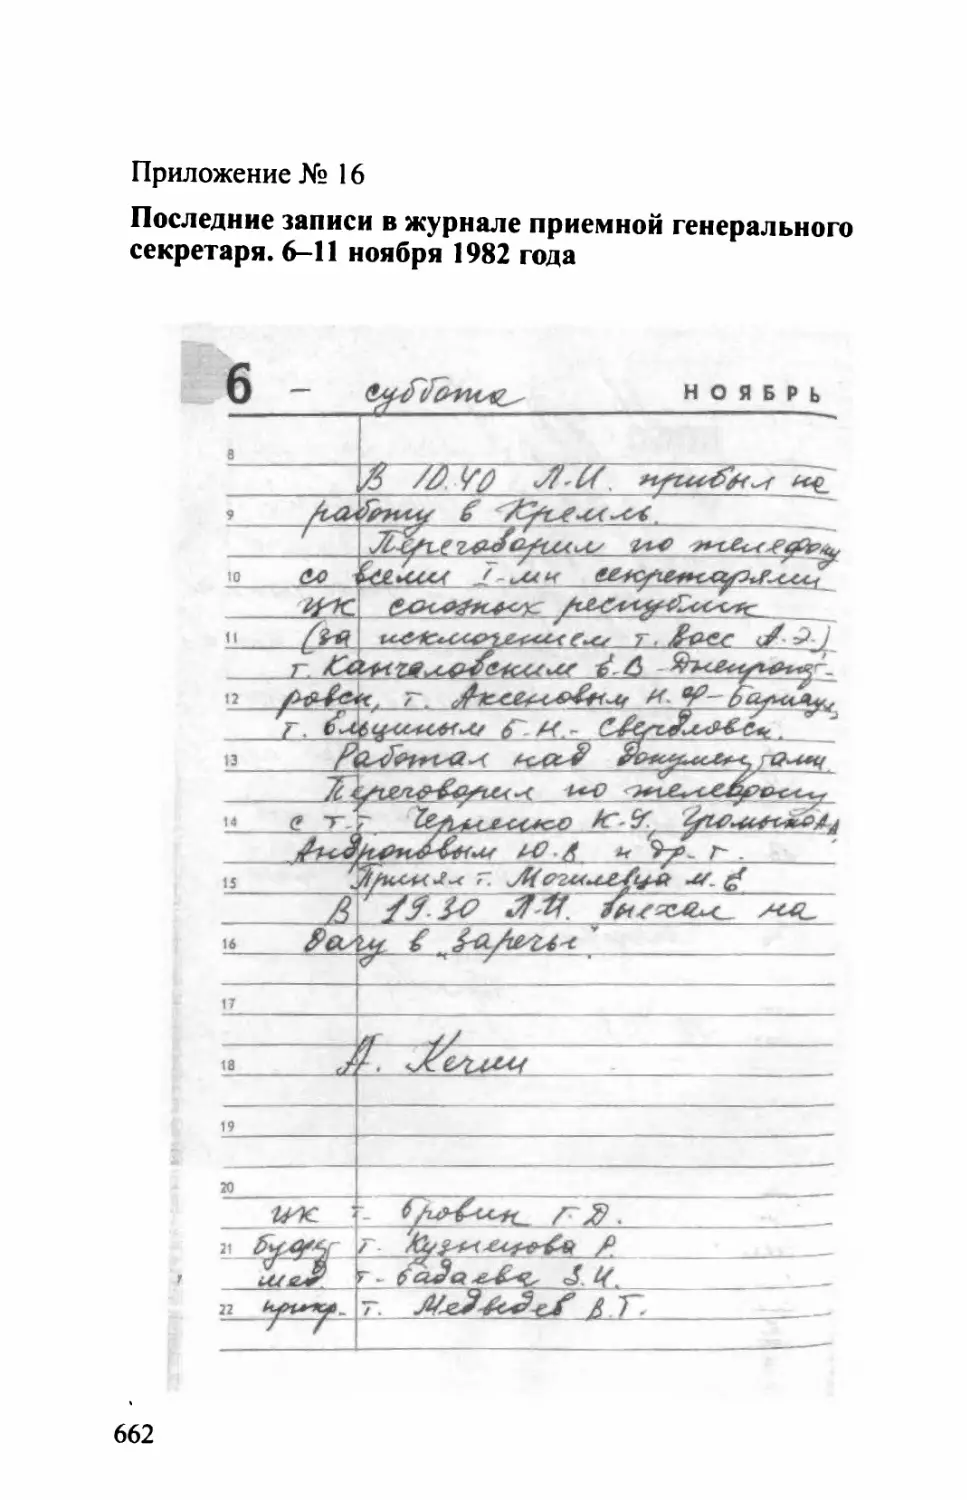 Приложение № 16
Последние записи в журнале приемной генерального
секретаря. 6–11 ноября 1982 года
6 - суббота НОЯБРЬ
8
В 10.40 Л.И. прибыл на
9 работу в Кремль.
Переговорил по телефону
10 со всеми I-ми секретарями
ЦК союзных республик
11 (за исключением т. Восс А.Э.)
т. Качаловским Е.В - Днепропет-
12 ровск, т. Аксеновым Н.Ф - Барнаул,
т. Ельциным Б.Н. - Свердловск.
13 Работал над документами.
Переговорил по телефону
14 с т.т. Черненко К.У., Громыко А.А
Андроповым Ю.В и др. т.
15 Принял т. Могилевца М.Е
В 19.30 Л.И. выехал на
16 дачу в "Заречье"
17
18 А.
19
20
ЦК т. Бровин Г.Д.
21 буфет т. Кузнецова Р.
мед. т. З.И.
22 прикр. т. Медведев В.Т.
662